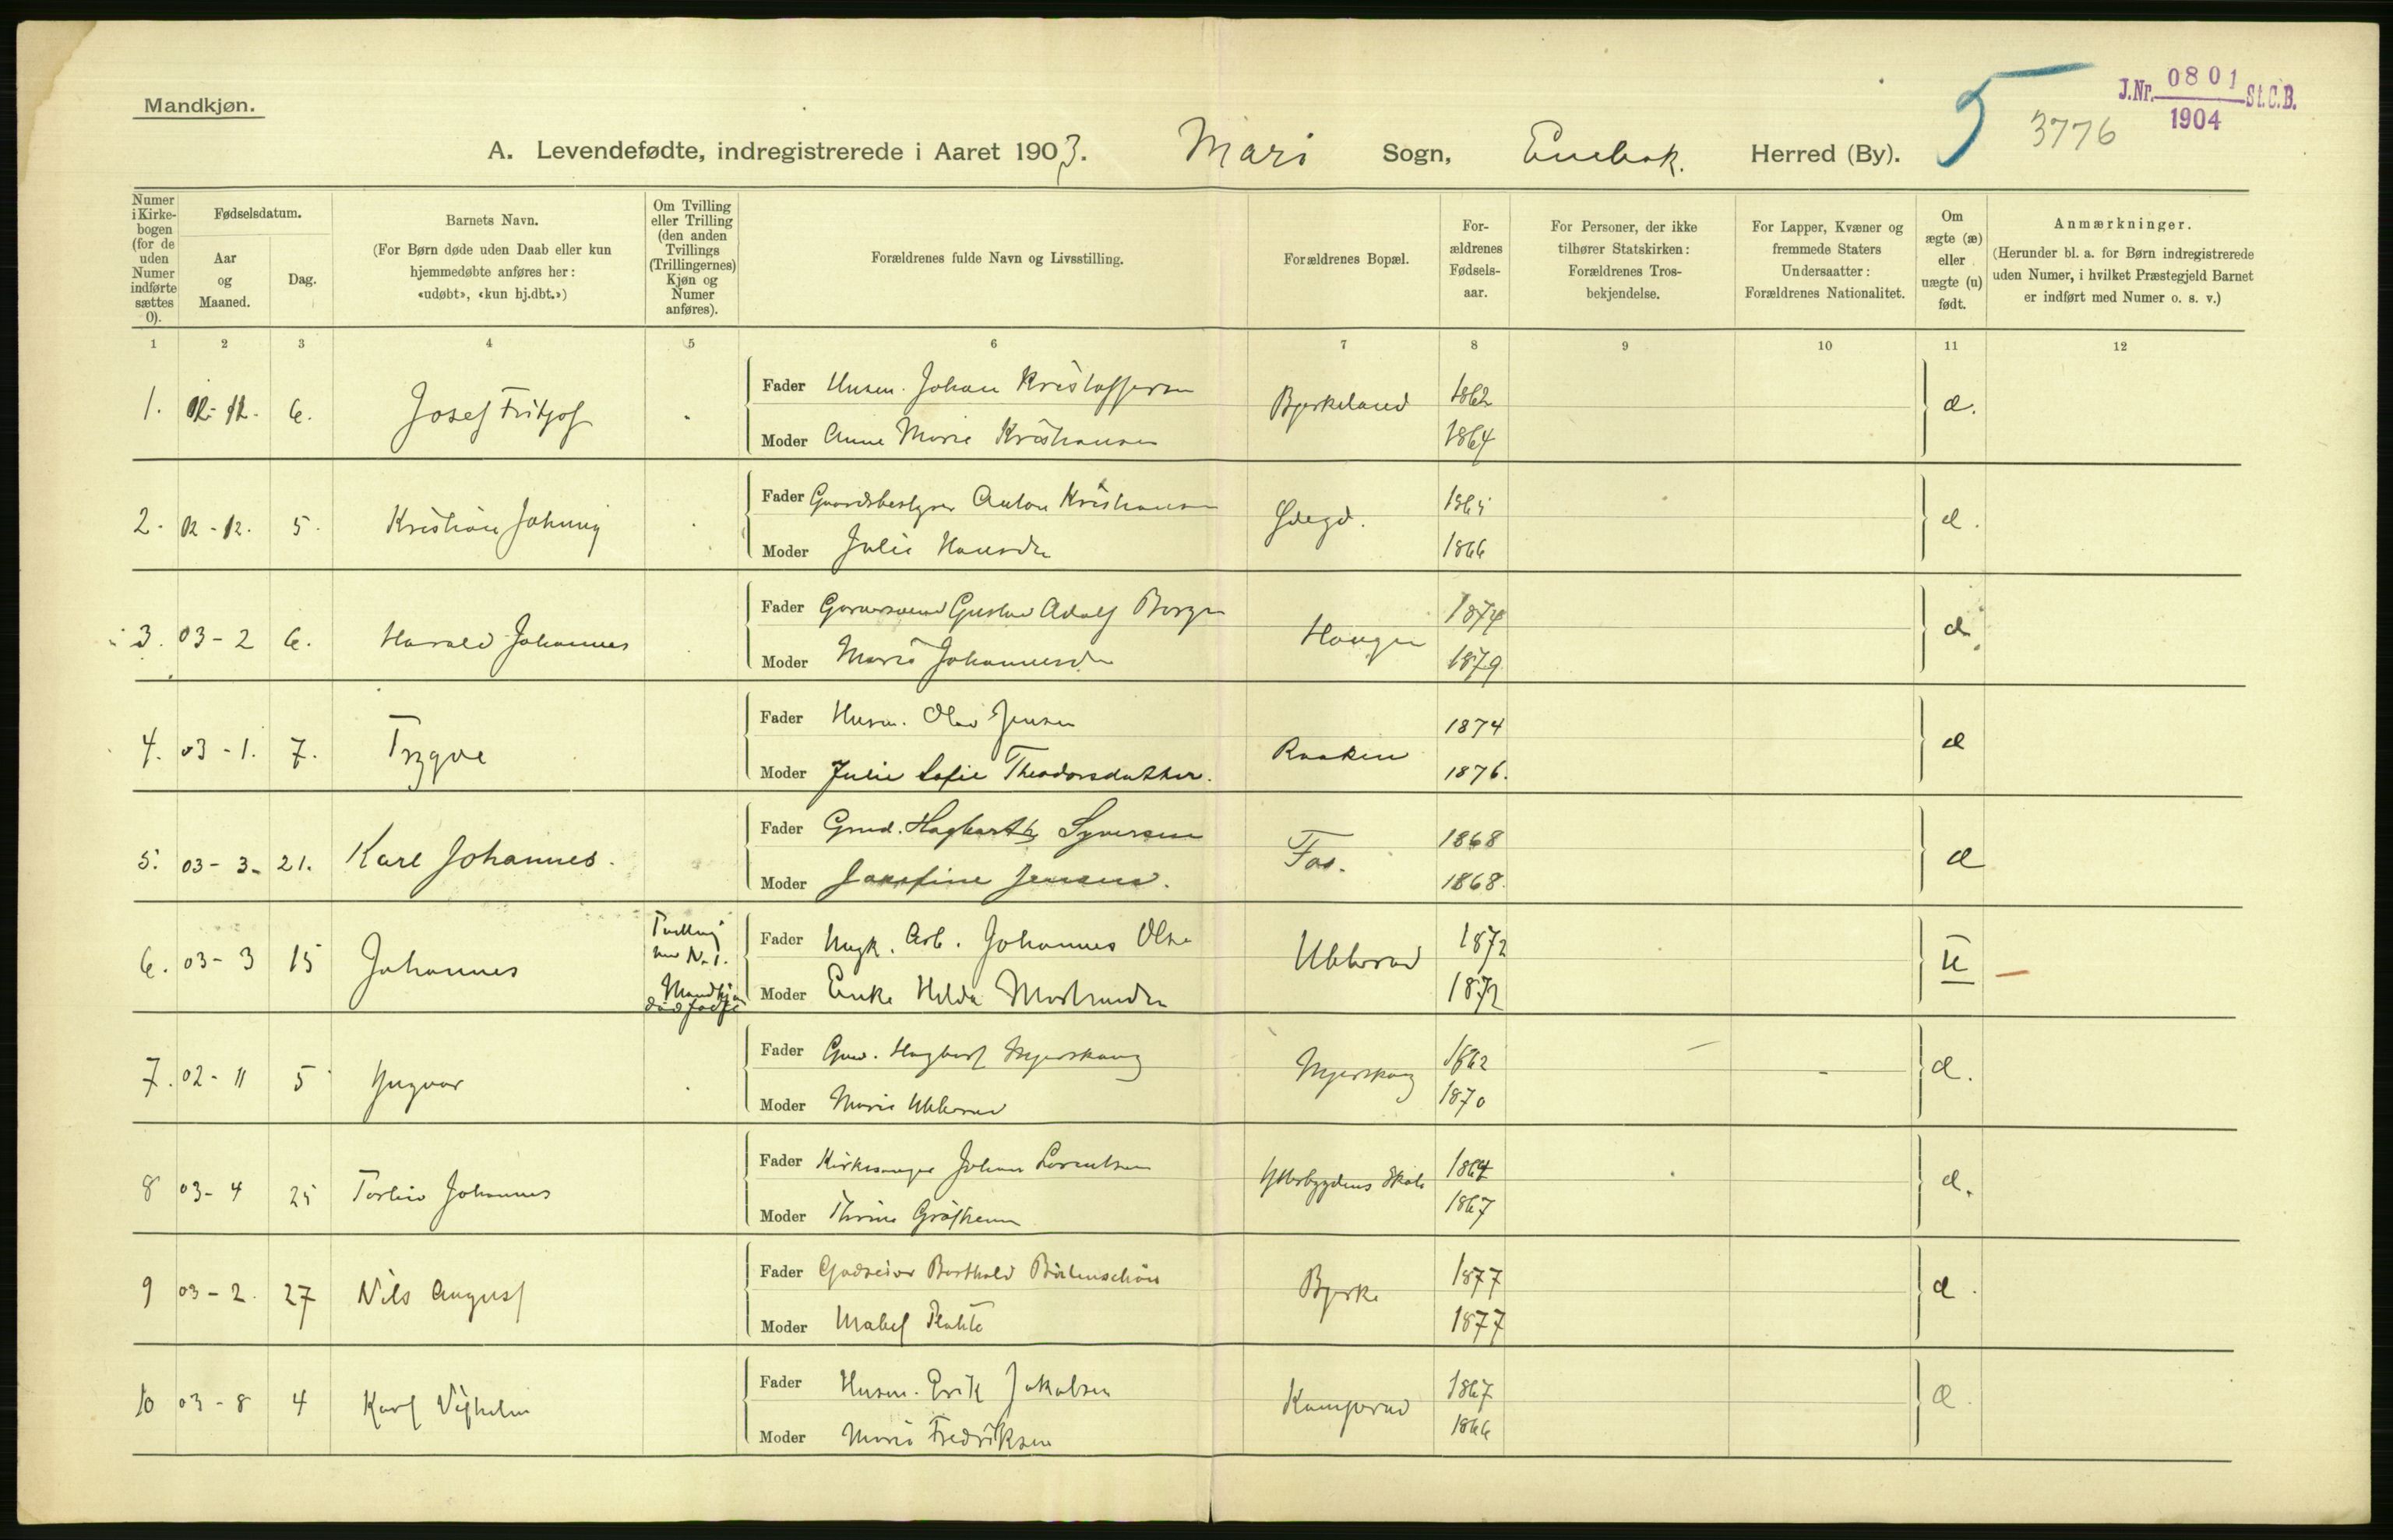 Mandkjøn.
J.Nr. 0801 St.C.B.
1904
5
3776
A. Levendefødte, indregistrerede i Aaret 1903. Mari Sogn, Enebak. Herred (By).
Numer i Kirke-bogen (for de uden Numer indførte sættes 0).
Fødselsdatum.
Aar og Maaned.
Dag.
Barnets Navn.
(For Børn døde uden Daab eller kun hjemmedøbte anføres her: «udøbt», «kun hj.dbt.»)
Om Tvilling eller Trilling (den anden Tvillings (Trillingernes) Kjøn og Numer anføres).
Forældrenes fulde Navn og Livsstilling.
Forældrenes Bopæl.
For-ældrenes Fødsels-aar.
For Personer, der ikke tilhører Statskirken: Forældrenes Tros-bekjendelse.
For Lapper, Kvæner og fremmede Staters Undersaatter: Forældrenes Nationalitet.
Om ægte (æ) eller uægte (u) født.
Anmærkninger.
(Herunder bl. a. for Børn indregistrerede uden Numer, i hvilket Præstegjeld Barnet er indført med Numer o. s. v.)
1 2 3 4 5 6 7 8 9 10 11 12
1. 02-12. 6. Josef Fritjof Fader Husm. Johan Kristoffersen Bjerkeland 1862 æ.
Moder Anne Marie Kristiansen 1864
2. 02-12. 5. Kristian Johnny Fader Gaardsbestyrer Anton Kristiansen 1865 æ.
Moder Julie Hansdtr 1866
3. 03-2 6. Harald Johannes Fader Garversvend Gustav Adolf Borgen Haugen 1874 æ.
Moder Marie Johannesdtr 1879
4. 03-1. 7. Trygve Fader Husm. Olav Jensen Raaken 1874 æ
Moder Julie Sofie Theodorsdatther. 1876.
5. 03-3- 21. Karl Johannes. Fader Grmd. Hagbarth Syversen Fos. 1868 æ
Moder Josefine Jensen. 1868.
6. 03-3 15 Johannes Tvilling med N. 1. Mandkjøn dødfødte Fader Ungk. Arb. Johannes Olsen Ubberud 1872 U
Moder Enke Hilda 1872
7. 02-11 5 Yngvar Fader Grmd. Hagbart Mjerskaug Mjerskaug 1862 æ.
Moder Marie Ubberud 1870
8 03-4 25 Torleiv Johannes Fader Kirkesanger Johan Lorentsen Ytterbygdens Skole 1864 æ.
Moder Thrine 1867
9 03-2. 27 Nils August Fader Godseier Berthold Bjerke 1877 æ.
Moder Mabel Plahte 1877
10 03-8 4 Karl Vilhelm Fader Husm. Erik Jakobsen Kamperud 1867 Æ.
Moder Marie Fredriksen 1866